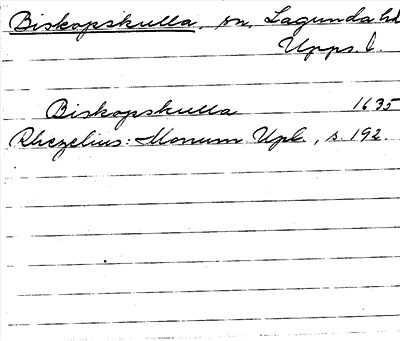 Biskopskulla, sn, Lagunda hd
Upps. l.
Biskopskulla 1635
Rhezelius: Monum Upl., s. 192.